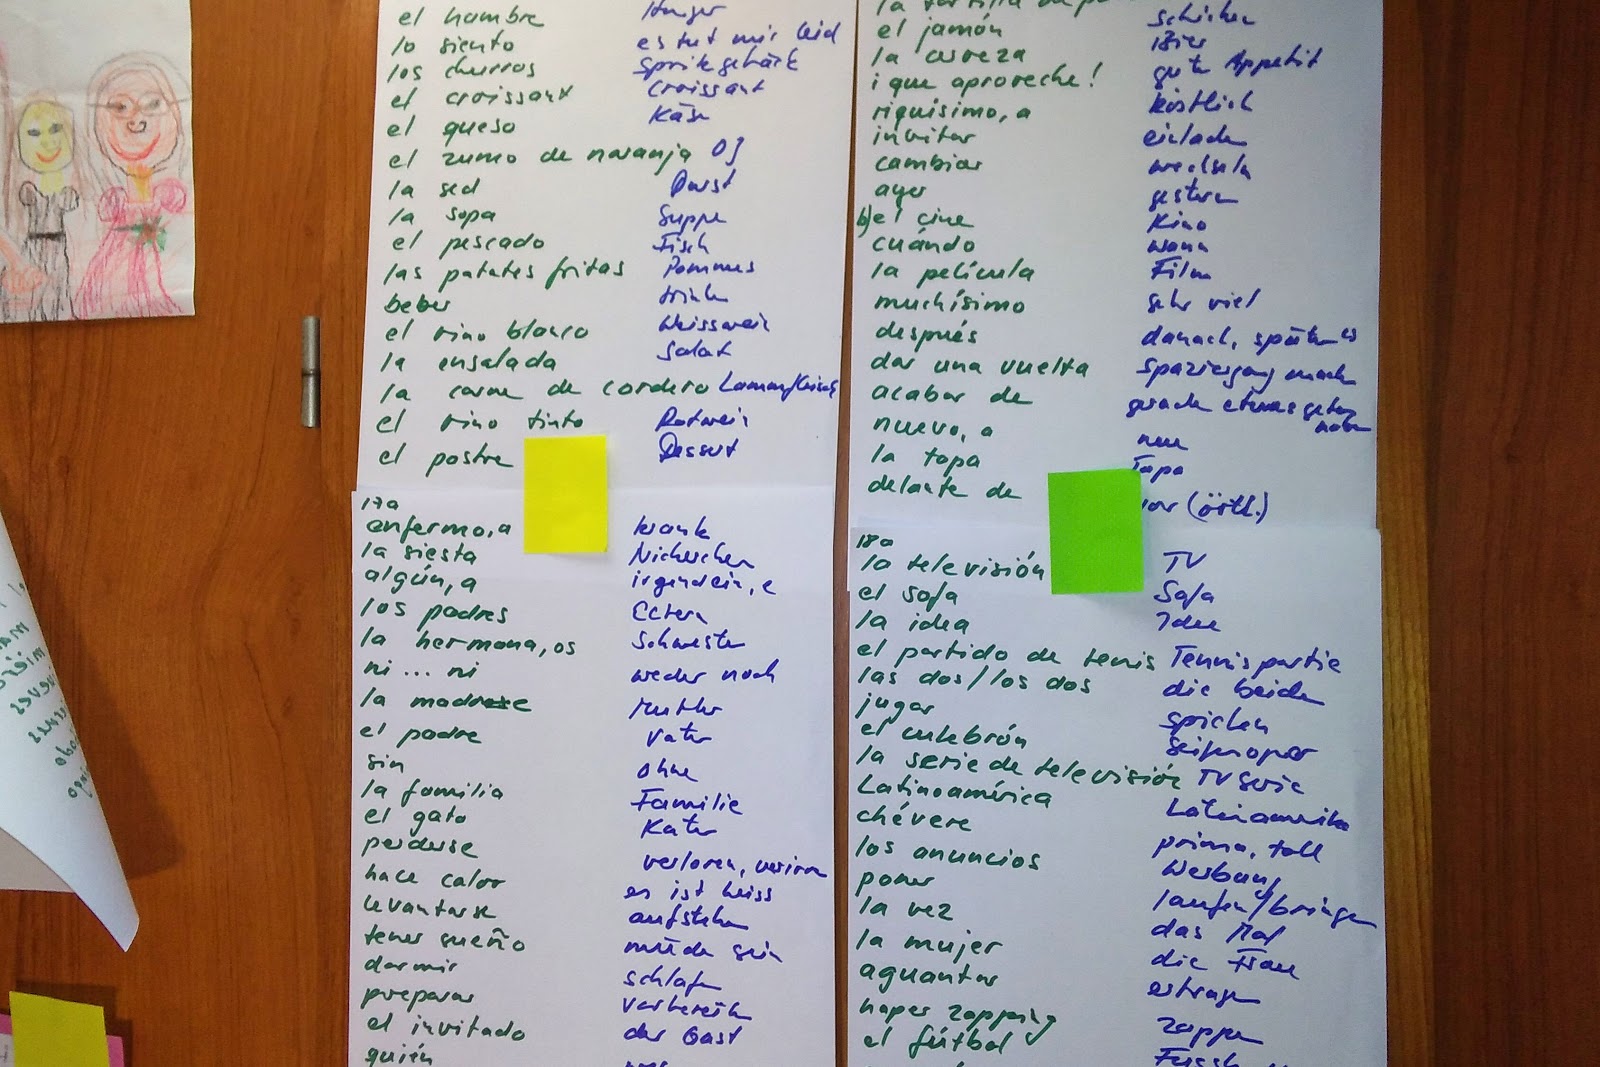 el hambre Hunger
lo siento es tut mir leid
los churros Spritzgebäck
el croissant Croissant
el queso Käse
el zumo de naranja OJ
la sed Durst
la sopa Suppe
el pescado Fisch
las patates fritas Pommes
beber trinken
el vino blanco Weisswein
la ensalada Salat
la carne de cordero
el vino tinto Rotwein
el postre Dessert
17a
enfermo, a krank
la siesta Nickerchen
algún, a irgendein, e
los padres Eltern
la hermana, os Schwester
ni ... ni weder noch
la madre Mutter
el padre Vater
sin ohne
la familia Familie
el gato Kater
perderse verloren, verirren
hace calor es ist heiss
levantarse aufstehen
tener sueño müde sein
dormir schlafen
preparar vorbereiten
el invitado der Gast
quién wer
la tortilla de
el jamón Schinken
la cerveza Bier
¡que aproveche! guten Appetit
riquísimo, a köstlich
invitar einladen
cambiar wechseln
ayer gestern
b) el cine Kino
cuándo wann
la película Film
muchísimo sehr viel
después danach, später
dar una vuelta Spaziergang machen
acabar de gerade etwas getan haben
nuevo, a neu
la tapa Tapa
delante de vor (örtl.)
18a
la televisión TV
el sofa Sofa
la idea Idee
el partido de tenis Tennispartie
las dos/los dos die beiden
jugar spielen
el culebrón Seifenoper
la serie de televisión TV Serie
Latinoamérica Lateinamerika
chévere prima, toll
los anuncios Werbung
poner laufen/bringen
la vez das Mal
la mujer die Frau
aguantar ertragen
haper zapping zappen
el fútbol